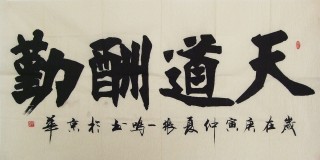 天道酬勤
歲在庚寅仲夏振一鳴書於京華